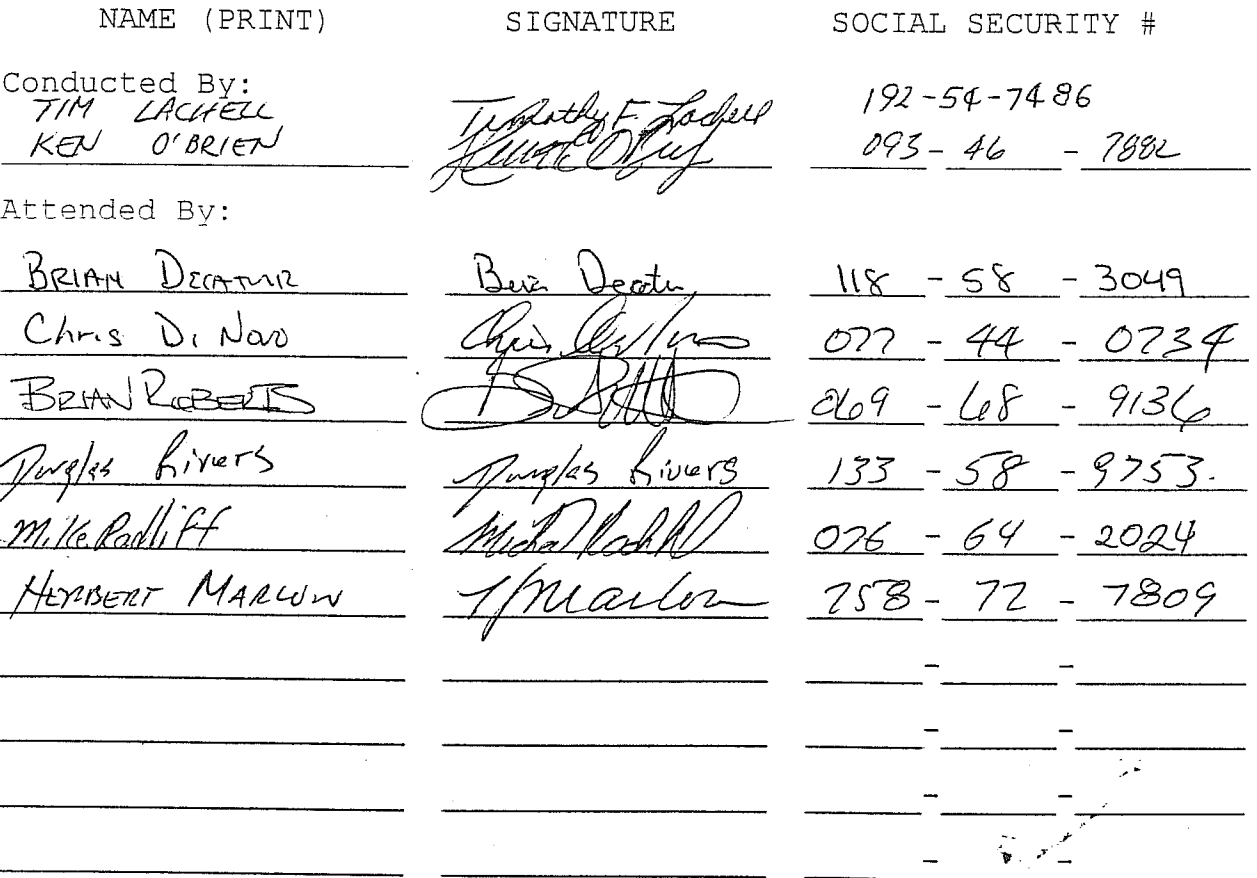 NAME (PRINT) SIGNATURE SOCIAL SECURITY #
Conducted By:
TIM LACHELL Timothy F. Lachell 192-54-7486
KEN O'BRIEN 093 - 46 - 7882
Attended By:
BRIAN DECATUR Brian Decatur 118 - 58 - 3049
Chris Di Novo 077 - 44 - 0734
BRIAN ROBERTS 069 - 68 - 9136
Douglas Rivers Douglas Rivers 133 - 58 - 9753.
Mike Radliff 076 - 64 - 2024
HERBERT MARLOW H Marlow 758 - 72 - 7809
- -
- -
- -
- -